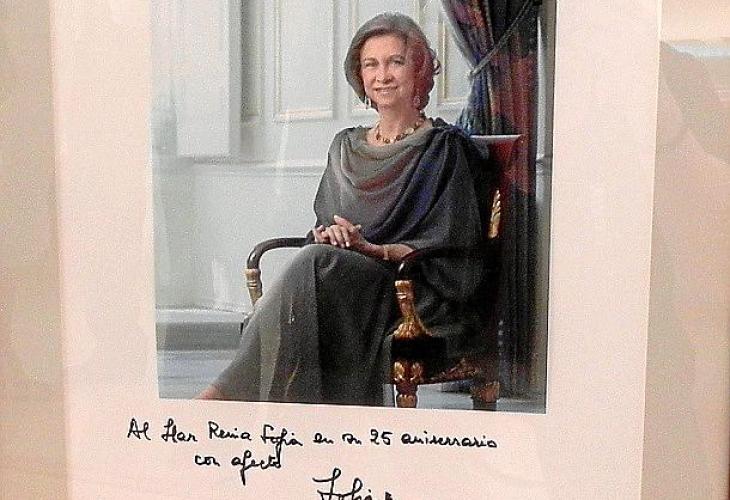 Al Llar Reina Sofía en su 25 aniversario
con afecto
Sofía R